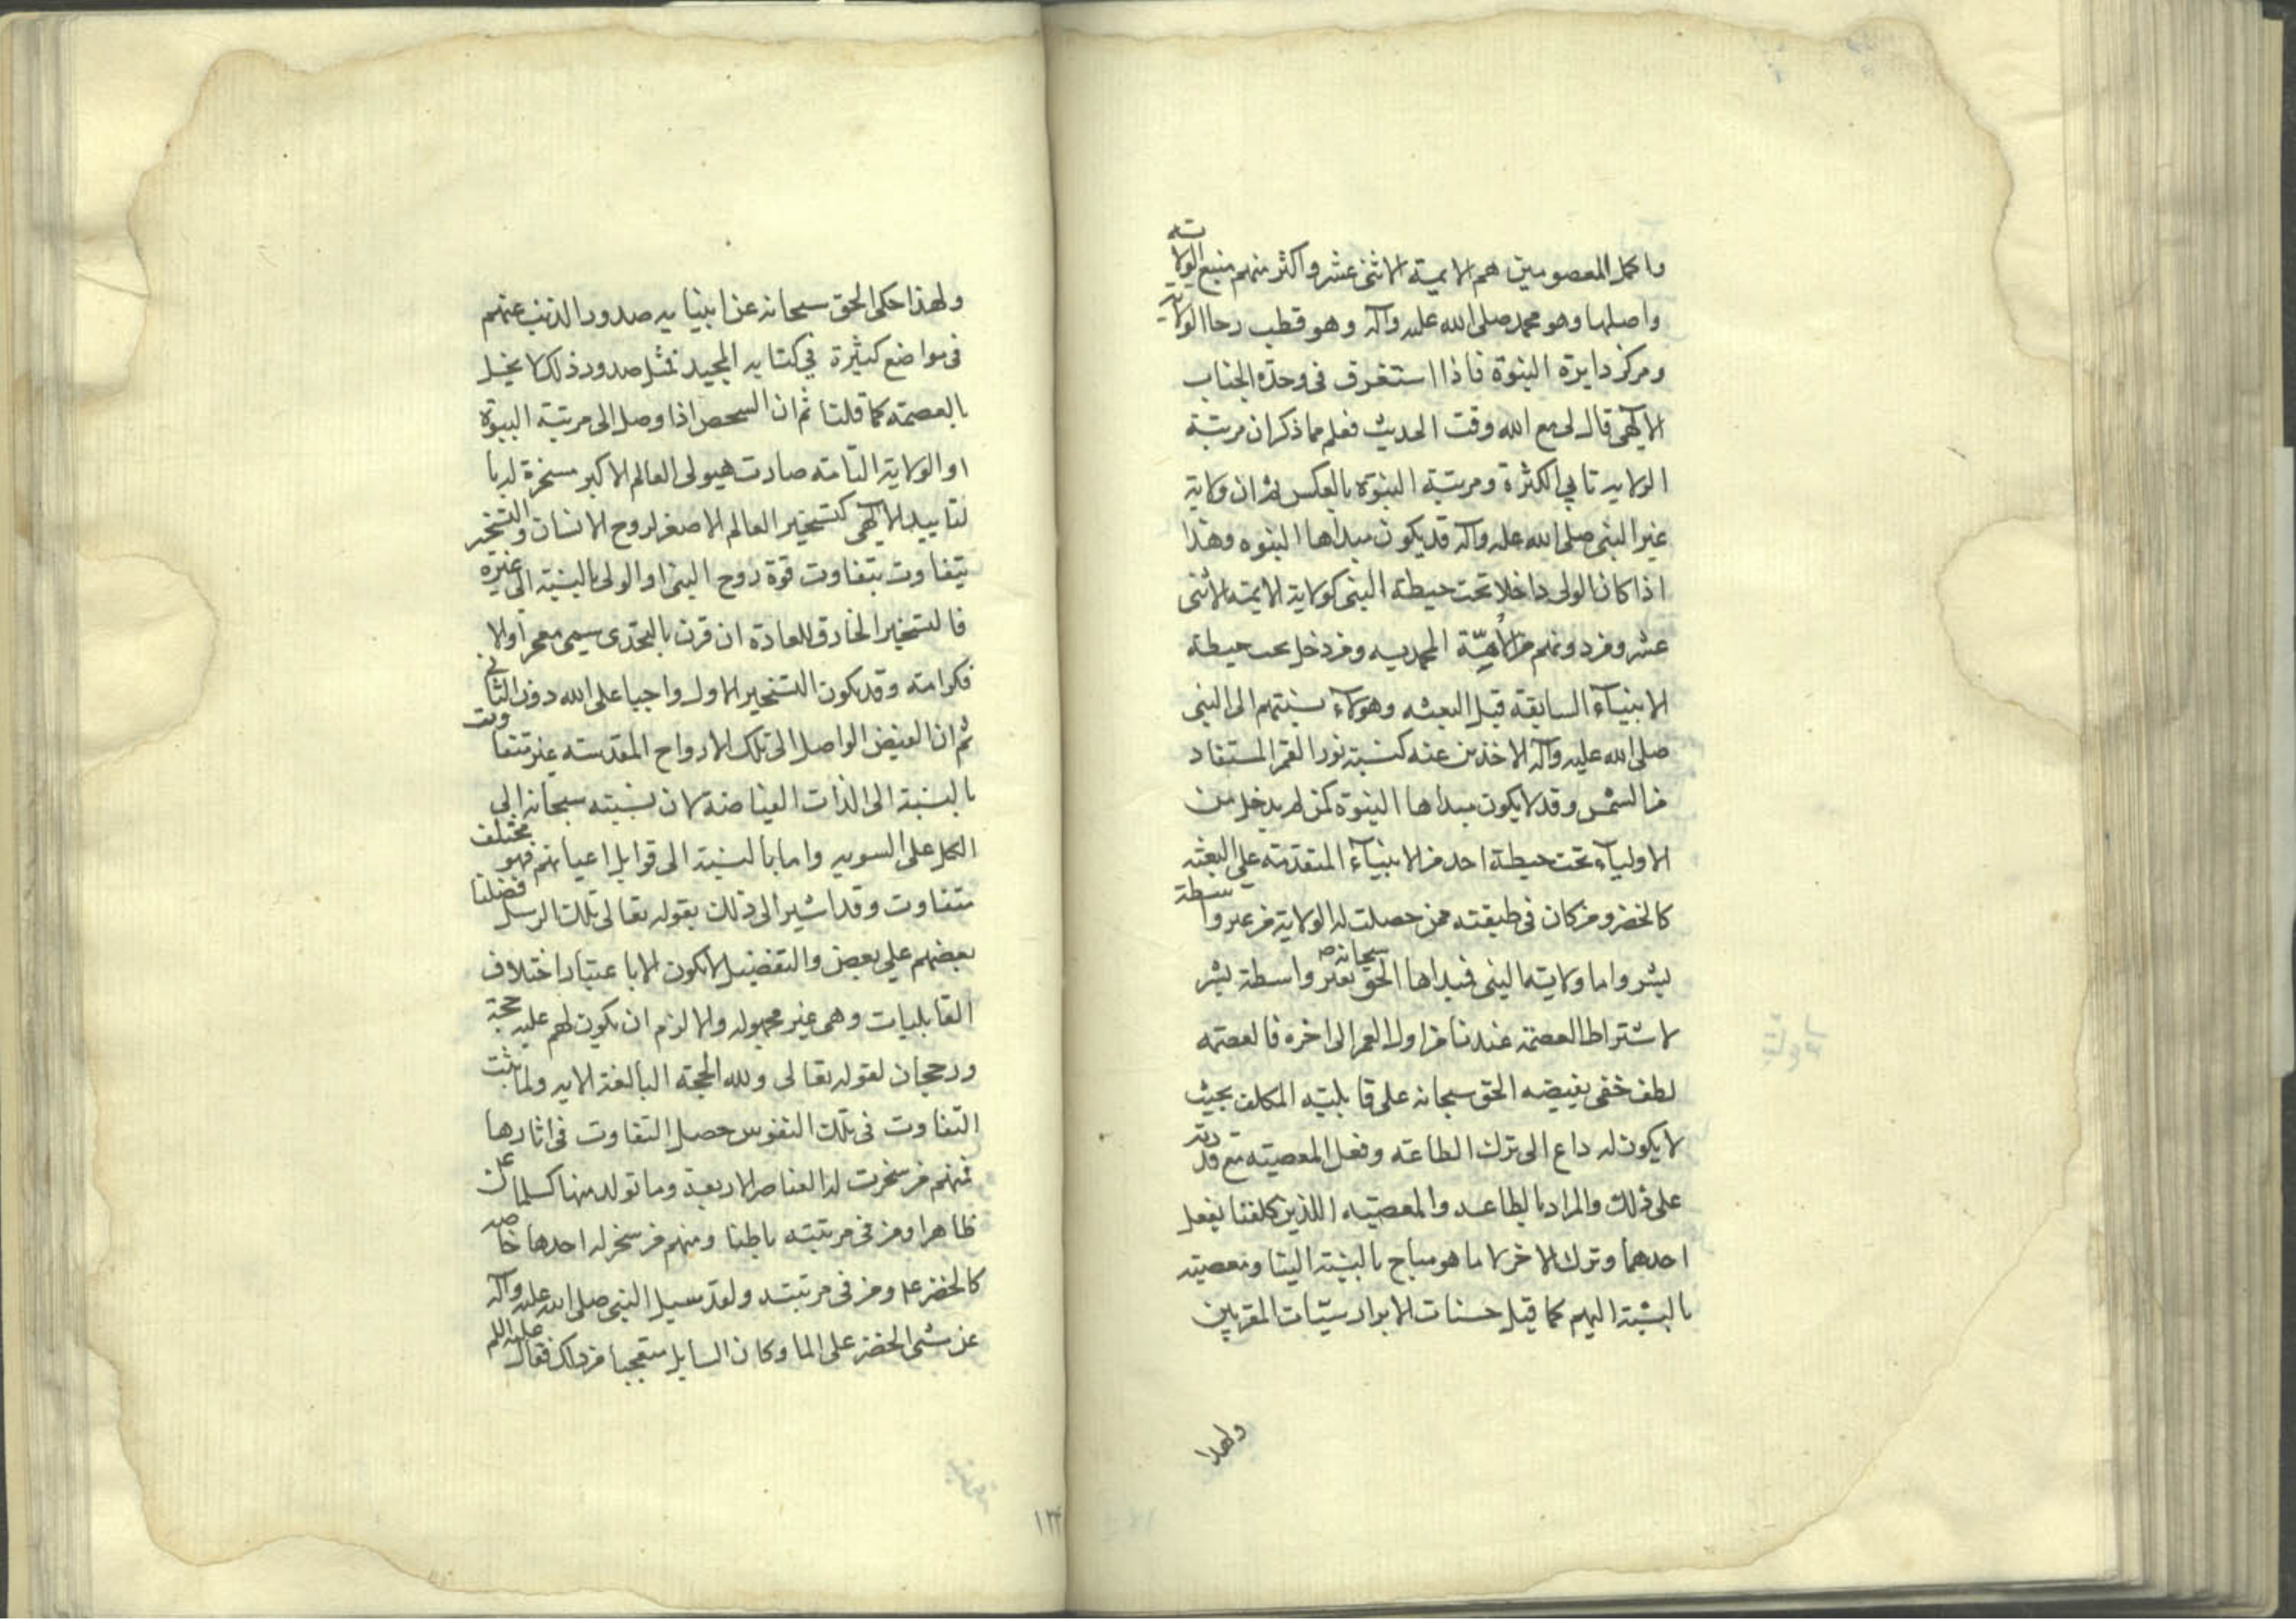 واكمل المعصومين هم الايمية الاثنى عشر واكثر منهم منبع الولاية
واصلها وهو محمد صلى الله عليه وآله وهو قطب رحا الولاية
ومركز دايرة النبوة فاذا استغرق فى وحدة الجناب
الآلهى قال لى مع الله وقت الحديث فعلم مما ذكر ان مرتبة
الولايه تابى الكثرة ومرتبة النبوة بالعكس ثم ان ولاية
غير النبى صلى الله عليه وآله قد يكون مبداها النبوه وهذا
اذا كان الولى داخلا تحت حيطة النبى كولاية الايمة الاثنى
عشر ومن دونهم من الأمّة المحمديه ومن دخل تحت حيطة
الانبيآء السابقة قبل البعثه وهولآء نسبتهم الى النبى
صلى الله عليه وآله الاخذين عنه كنسبة نور القمر المستفاد
من الشمس وقد لا يكون مبداها النبوة كمن لم يدخل من
الاوليآء تحت حيطة احد من الانبيآء المتقدمة على البعثه
كالخضر ومن كان فى طبقته ممن حصلت له الولاية من غير واسطة
بشر واما ولايته النبى فمبداها الحق سبحانه بغير واسطة بشر
لاشتراط العصمة عندنا من اول العمر الى اخره فالعصمه
لطف خفى يفيضه الحق سبحانه على قابلية المكلف بحيث
لا يكون له داع الى ترك الطاعه وفعل المعصيته مع قدرته
على ذلك والمراد بالطاعه والمعصيه اللذين كلفنا بفعل
احدهما وترك الاخر لا ما هو مباح بالنسبة الينا ومعصيته
بالنسبة اليهم كما قيل حسنات الابرار سيّات المقربين
ولهذا
ولهذا حكى الحق سبحانه عن انبيايه صدور الذنب عنهم
فى مواضع كثيرة فى كتابه المجيد فمثل صدور ذلك لا يخل
بالعصمته كما قلنا ثم ان السحص اذا وصل الى مرتبة النبوة
او الولاية التامة صارت هيولى العالم الاكبر مسخرة له با
لتاييد الآلهى كتسخير العالم الاصغر لروح الانسان والتسخير
يتفاوت بتفاوت قوة روح النبى او الولى بالنسبة الى غيره
فالتسخير الخارق للعادة ان قرن بالتحدى سمى معجزا ولا
فكرامته وقد يكون التسخير الاول واجبا على الله دون الثانى
ثم ان الفيض الواصل الى تلك الارواح المقدسته غير متفاوت
بالنسبة الى الذات الفياضة لان نسبته سبحانه الى
الكل على السويه واما بالنسبة الى قوابل اعيانهم فهو مختلف
متفاوت وقد اشير الى ذلك بقوله تعالى تلك الرسل فضلنا
بعضهم على بعض والتفضيل لا يكون الا باعتبار اختلاف
القابليات وهى غير مجهوله والا لزم ان يكون لهم عليه حجة
ورجحان لقوله تعالى ولله الحجة البالغة الايه ولما ثبت
التفاوت فى تلك النفوس حصل التفاوت فى اثارها
فمنهم من سخرت له العناصر الاربعة وما تولد منها كسليمان ع
ظاهرا ومن فى مرتبته باطنا ومنهم من سخر له احدها خاصه
كالخضر ع ومن فى مرتبته ولقد سيل النبى صلى الله عليه وآله
عن مشى الخضر على الما وكان السايل متعجبا من ذلك فقال عليه السلم
١٢٤